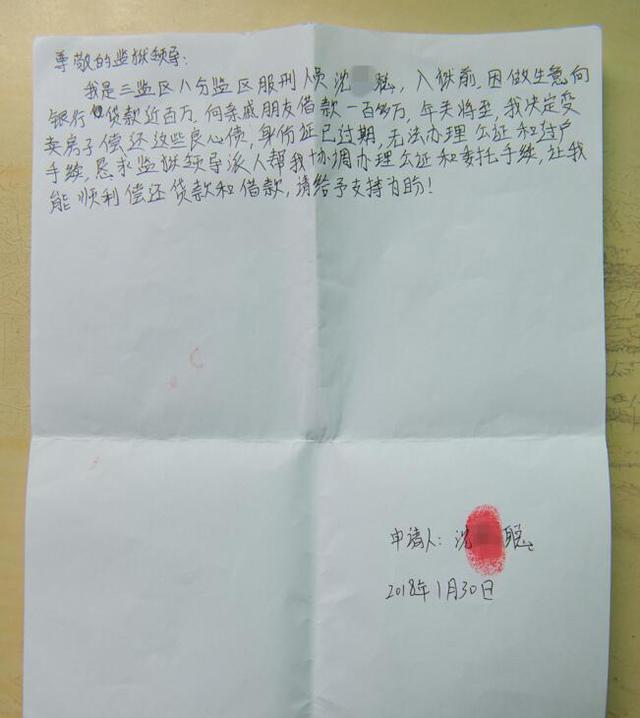 尊敬的监狱领导:
我是三监区八分监区服刑人员沈 聪,入狱前,因做生意向
银行贷款近百万,向亲戚朋友借款一百多万,年关将至,我决定变
卖房子偿还这些良心债,身份证已过期,无法办理公证和过户
手续,恳求监狱领导派人帮我协调办理公证和委托手续,让我
能顺利偿还贷款和借款,请给予支持为盼!
申请人:沈 聪
2018年1月30日